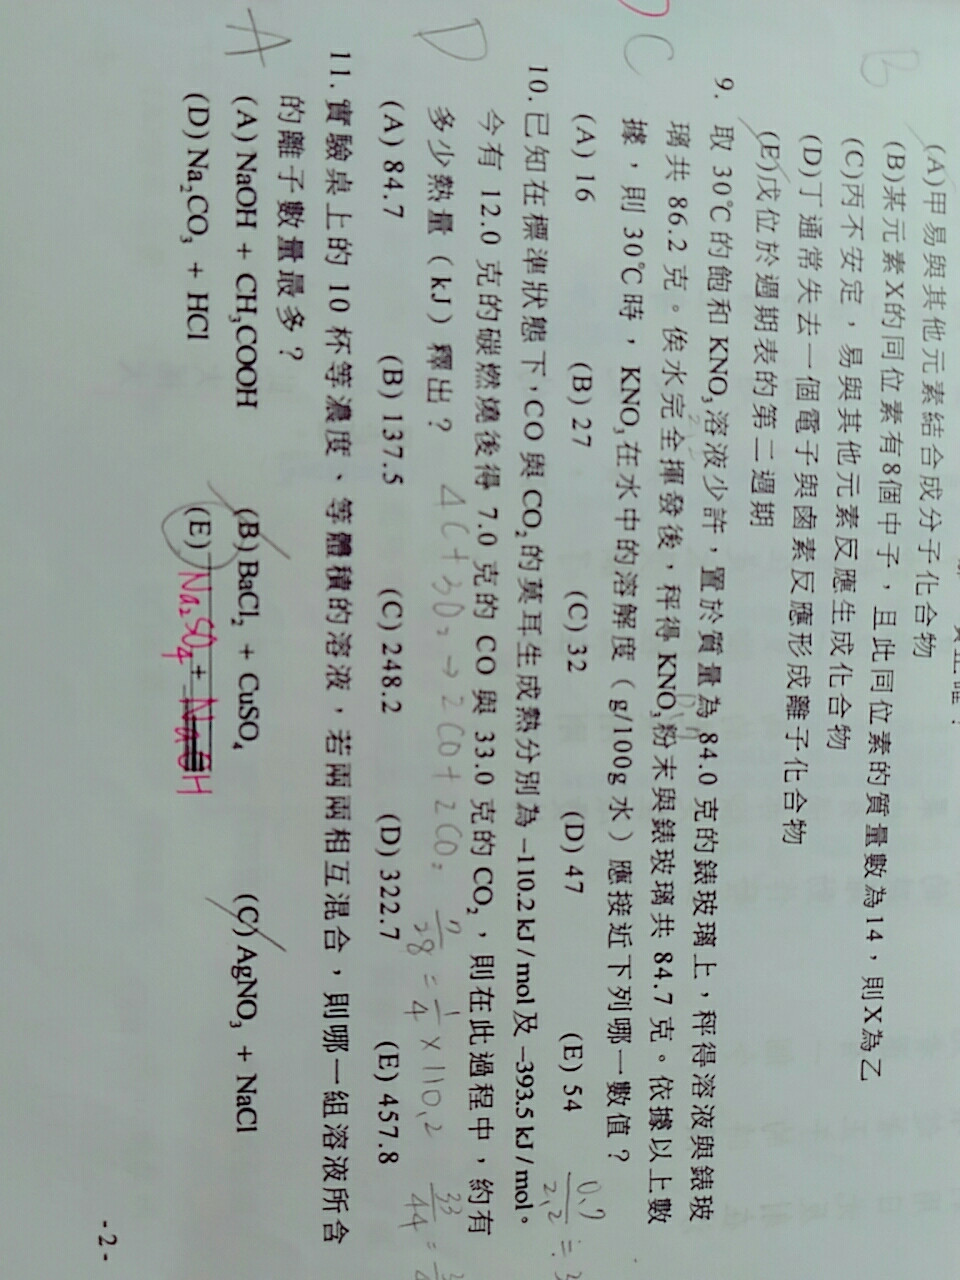 B
(A)甲易與其他元素結合成分子化合物
(B)某元素X的同位素有8個中子，且此同位素的質量數為14，則X為乙
(C)丙不安定，易與其他元素反應生成化合物
(D)丁通常失去一個電子與鹵素反應形成離子化合物
(E)戊位於週期表的第二週期
C
9. 取 30℃的飽和 KNO₃溶液少許，置於質量為 84.0 克的錶玻璃上，秤得溶液與錶玻
璃共 86.2 克。俟水完全揮發後，秤得 KNO₃粉末與錶玻璃共 84.7 克。依據以上數
據，則 30℃時，KNO₃在水中的溶解度（g/100g 水）應接近下列哪一數值？
(A) 16 (B) 27 (C) 32 (D) 47 (E) 54
D
10. 已知在標準狀態下，CO 與 CO₂的莫耳生成熱分別為 –110.2 kJ / mol 及 –393.5 kJ / mol。
今有 12.0 克的碳燃燒後得 7.0 克的 CO 與 33.0 克的 CO₂，則在此過程中，約有
多少熱量（kJ）釋出？
4C+3O₂→2CO+2CO₂ 7/28 = 1/4 ×110.2 33/44 =
(A) 84.7 (B) 137.5 (C) 248.2 (D) 322.7 (E) 457.8
A
11. 實驗桌上的 10 杯等濃度、等體積的溶液，若兩兩相互混合，則哪一組溶液所含
的離子數量最多？
(A) NaOH + CH₃COOH (B) BaCl₂ + CuSO₄ (C) AgNO₃ + NaCl
(D) Na₂CO₃ + HCl (E) Na₂SO₄ + NaOH
- 2 -